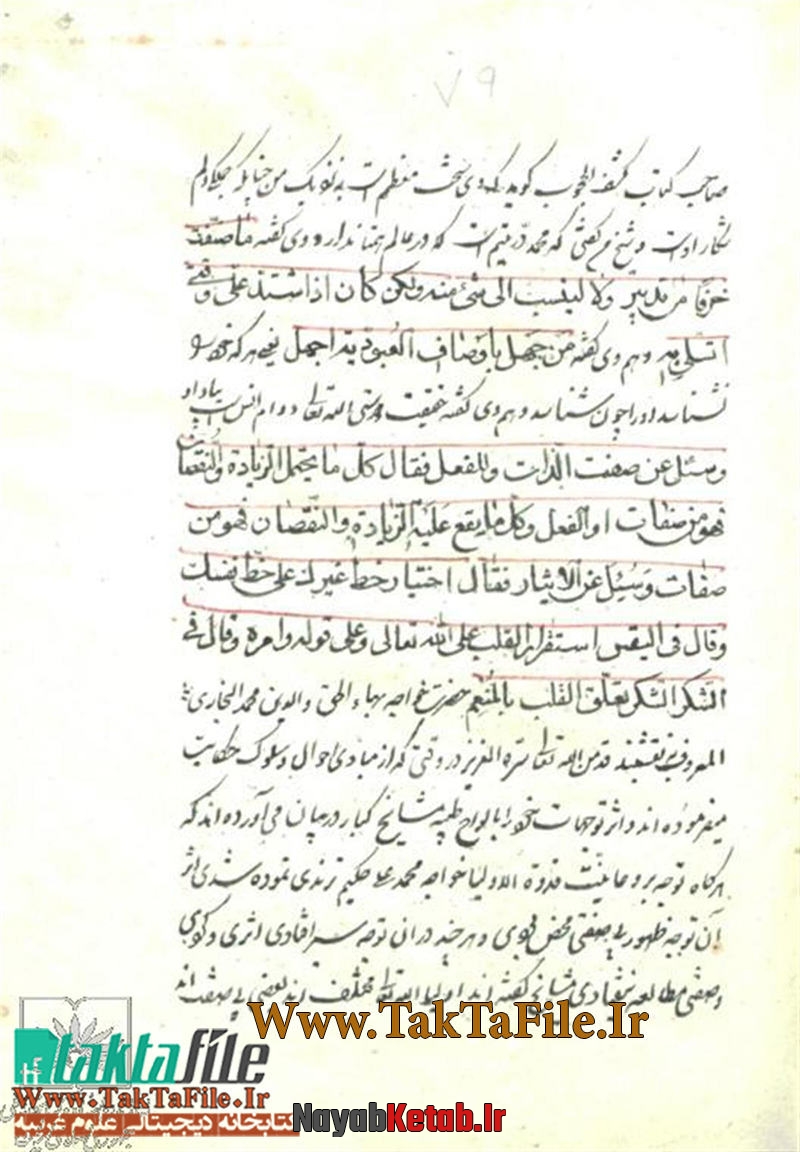 ۷۹
صاحب کتاب کشف المحجوب کوید که وی سخت معظم است به نزدیک من چنانکه جمله دلم
شکار اوست و شیخ من کفتی که محمد در یتیم است که در عالم همتا ندارد و وی کفته ما صنفت
حرفا من تدبیر ولا لینسب الی شیٔ منه ولکن کان اذا اشتد علی وقتی
اتسلی به و هم وی کفته من جهل باوصاف العبودیة اجهل یعنی هر که خود را
نشناسد او را چون شناسد و هم وی کفته حقیقت دوستی الله تعالی دوام انس است بیاد او
وسئل عن صفت الذات والفعل فقال کل ما یحتمل الزیادة والنقصان
فهو من صفات او الفعل وکل ما یقع علیه الزیادة والنقصان فهو من
صفات وسئل عن الایثار فقال اختیار حظ غیرک علی حظ نفسک
وقال فی الیقین استقرار القلب علی الله تعالی وعلی قوله وامره وقال فی
الشکر الشکر تعلق القلب بالمنعم حضرت خواجه بهاء الحق والدین محمد البخاری
المعروف بنقشبند قدس الله تعالی سره العزیز در وقتی که از مبادی احوال و سلوک حکایت
میفرموده اند و اثر توجهات خود را بارواح طیبه مشایخ کبار در میان می آورده اند که
هر کاه توجه بروحانیت قدوة الاولیا خواجه محمد علی حکیم ترمذی نموده شدی اثر
آن توجه ظهور بی صفتی محض بودی و هر چند در آن توجه سیر افتادی اثری و کردی
و صفتی مطالعه نیفتادی مشایخ کفته اند اولیا الله تعالی مختلف اند بعضی بی صفت اند
Www.TakTaFile.Ir
taktafile
Www.TakTaFile.Ir
کتابخانه دیجیتالی علوم غریبه
NayabKetab.Ir